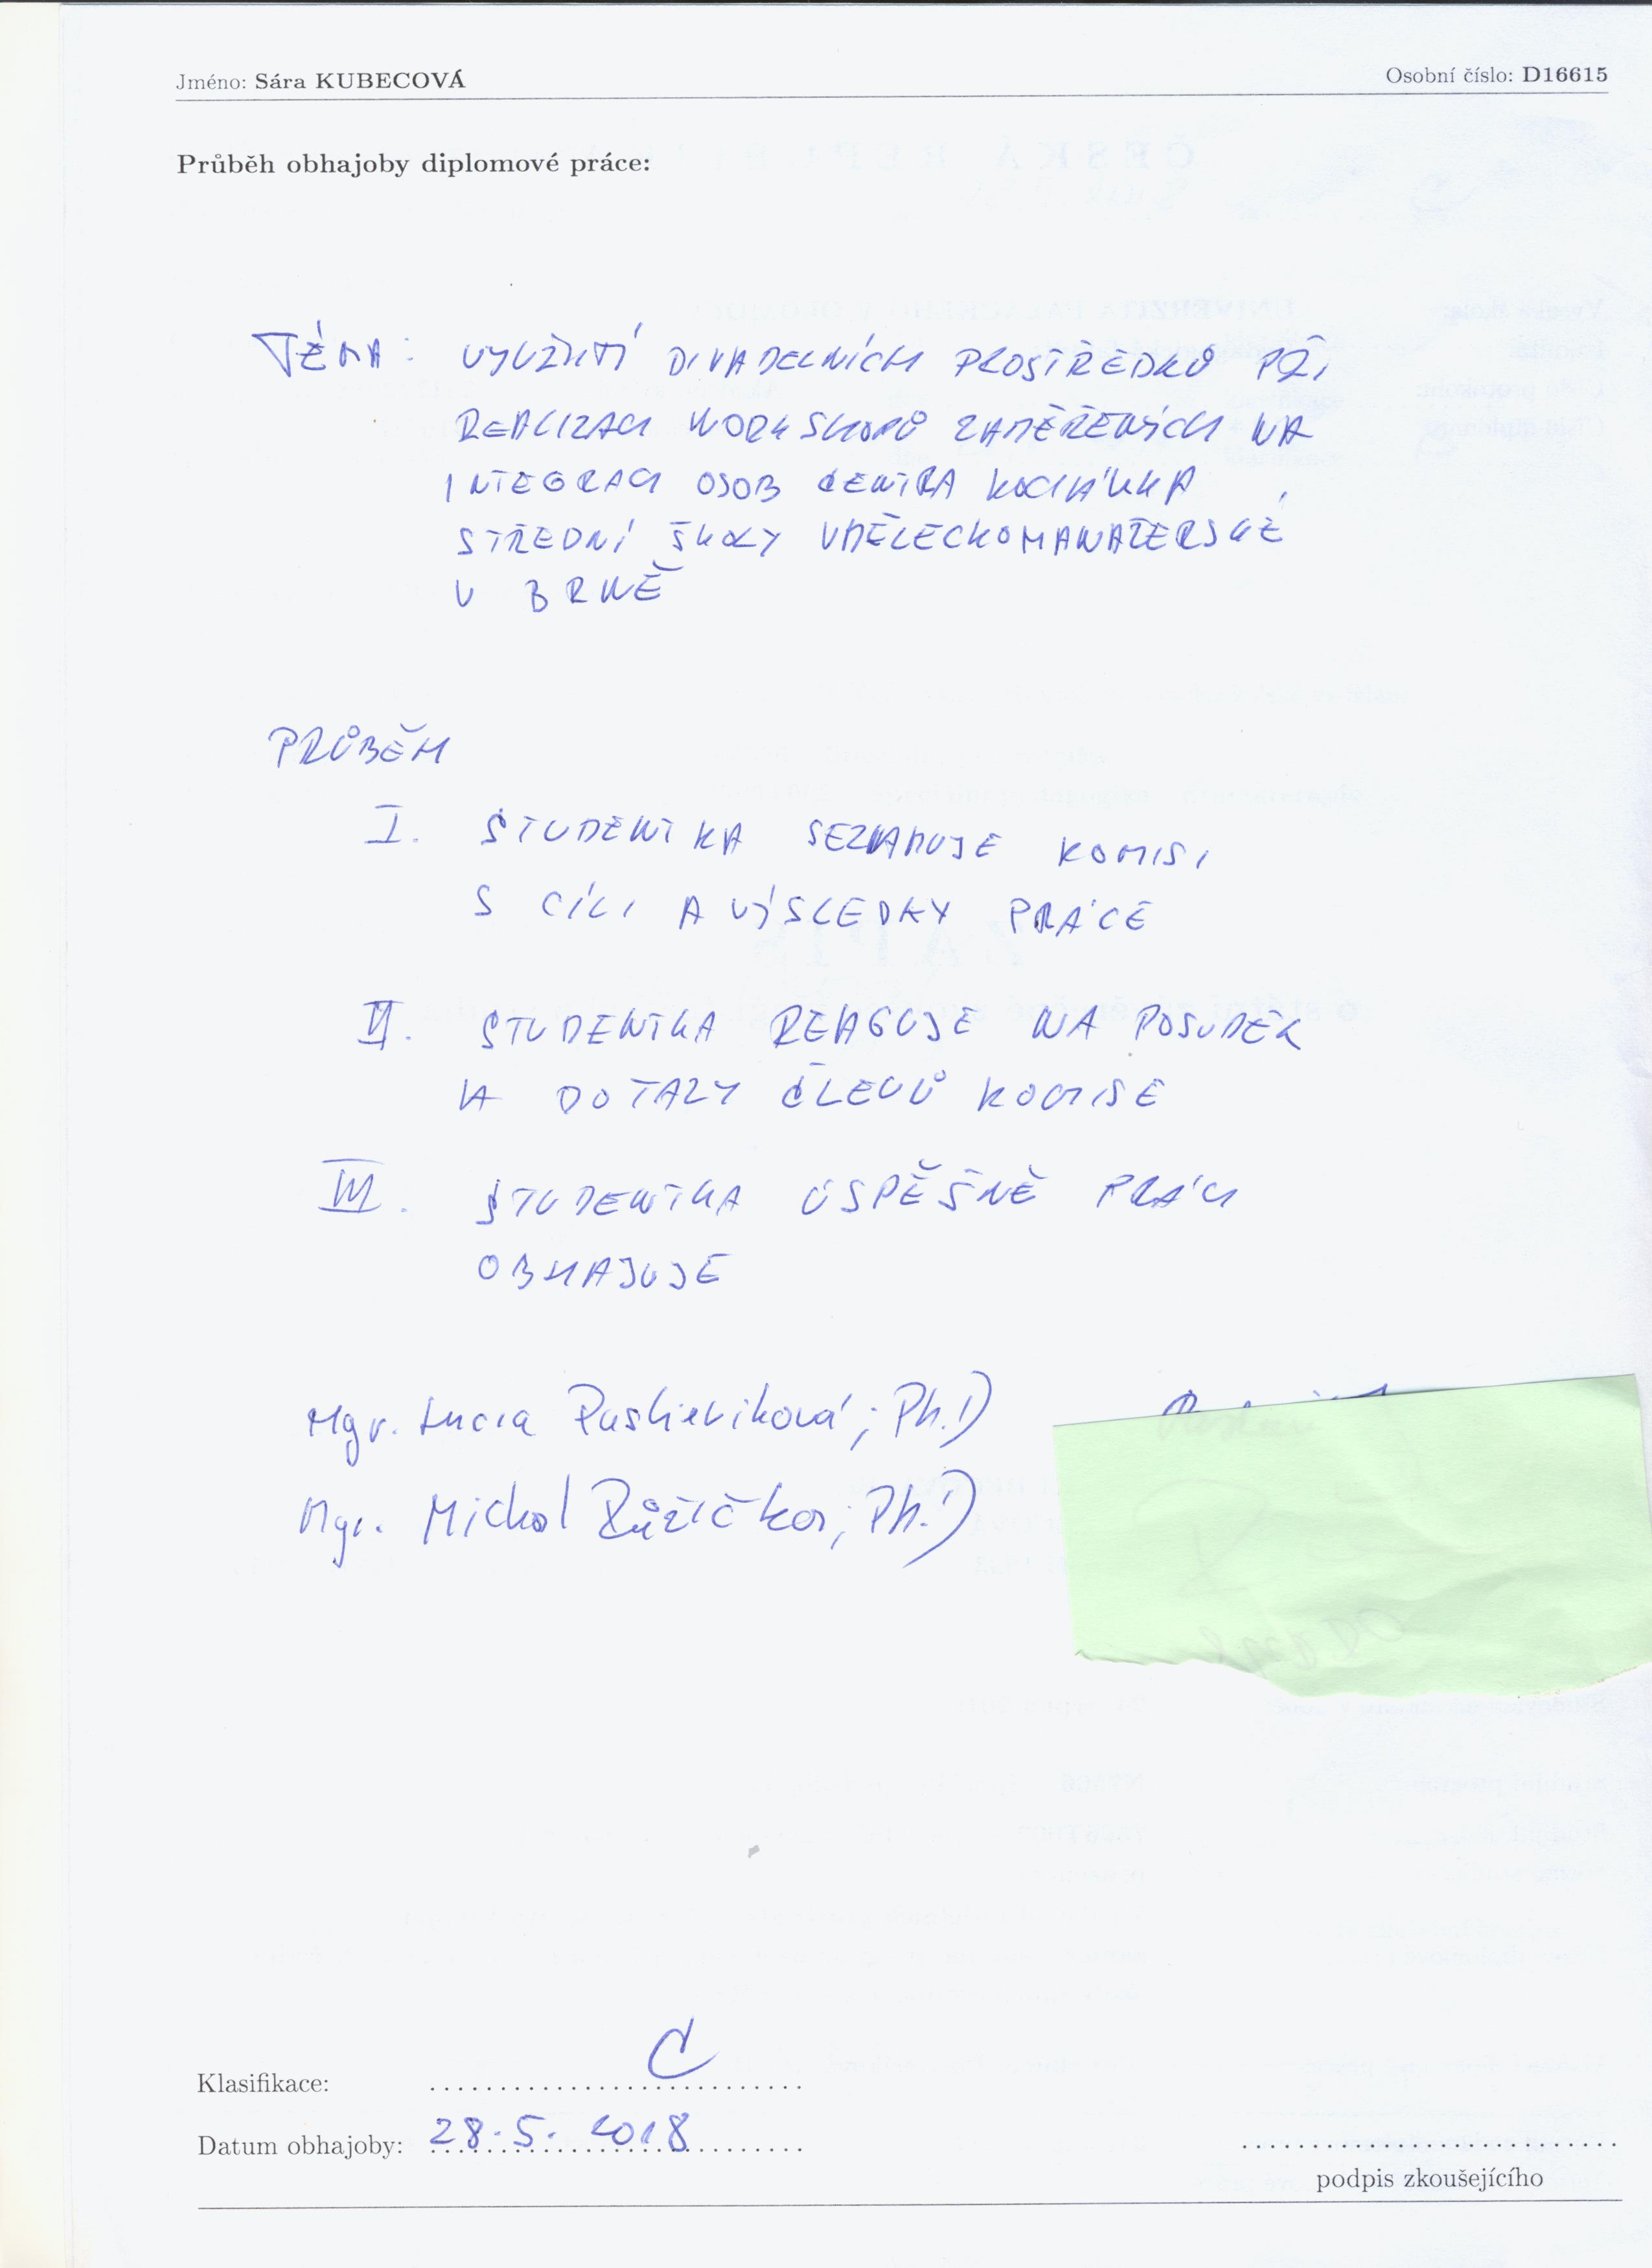 Jméno: Sára KUBECOVÁ
Osobní číslo: D16615
Průběh obhajoby diplomové práce:
TÉMA: VYUŽITÍ DIVADELNÍCH PROSTŘEDKŮ PŘI
REALIZACI WORKSHOPŮ ZAMĚŘENÝCH NA
INTEGRACI OSOB CENTRA KOCIÁNKA
STŘEDNÍ ŠKOLY UMĚLECKOMANAŽERSKÉ
V BRNĚ
PRŮBĚH
I. STUDENTKA SEZNAMUJE KOMISI
S CÍLI A VÝSLEDKY PRÁCE
II. STUDENTKA REAGUJE NA POSUDEK
A DOTAZY ČLENŮ KOMISE
III. STUDENTKA ÚSPĚŠNĚ PRÁCI
OBHAJUJE
Mgr. Lucia Pastieriková, Ph.D
Mgr. Michal Růžička, Ph.D
Klasifikace: C
Datum obhajoby: 28.5. 2018
podpis zkoušejícího